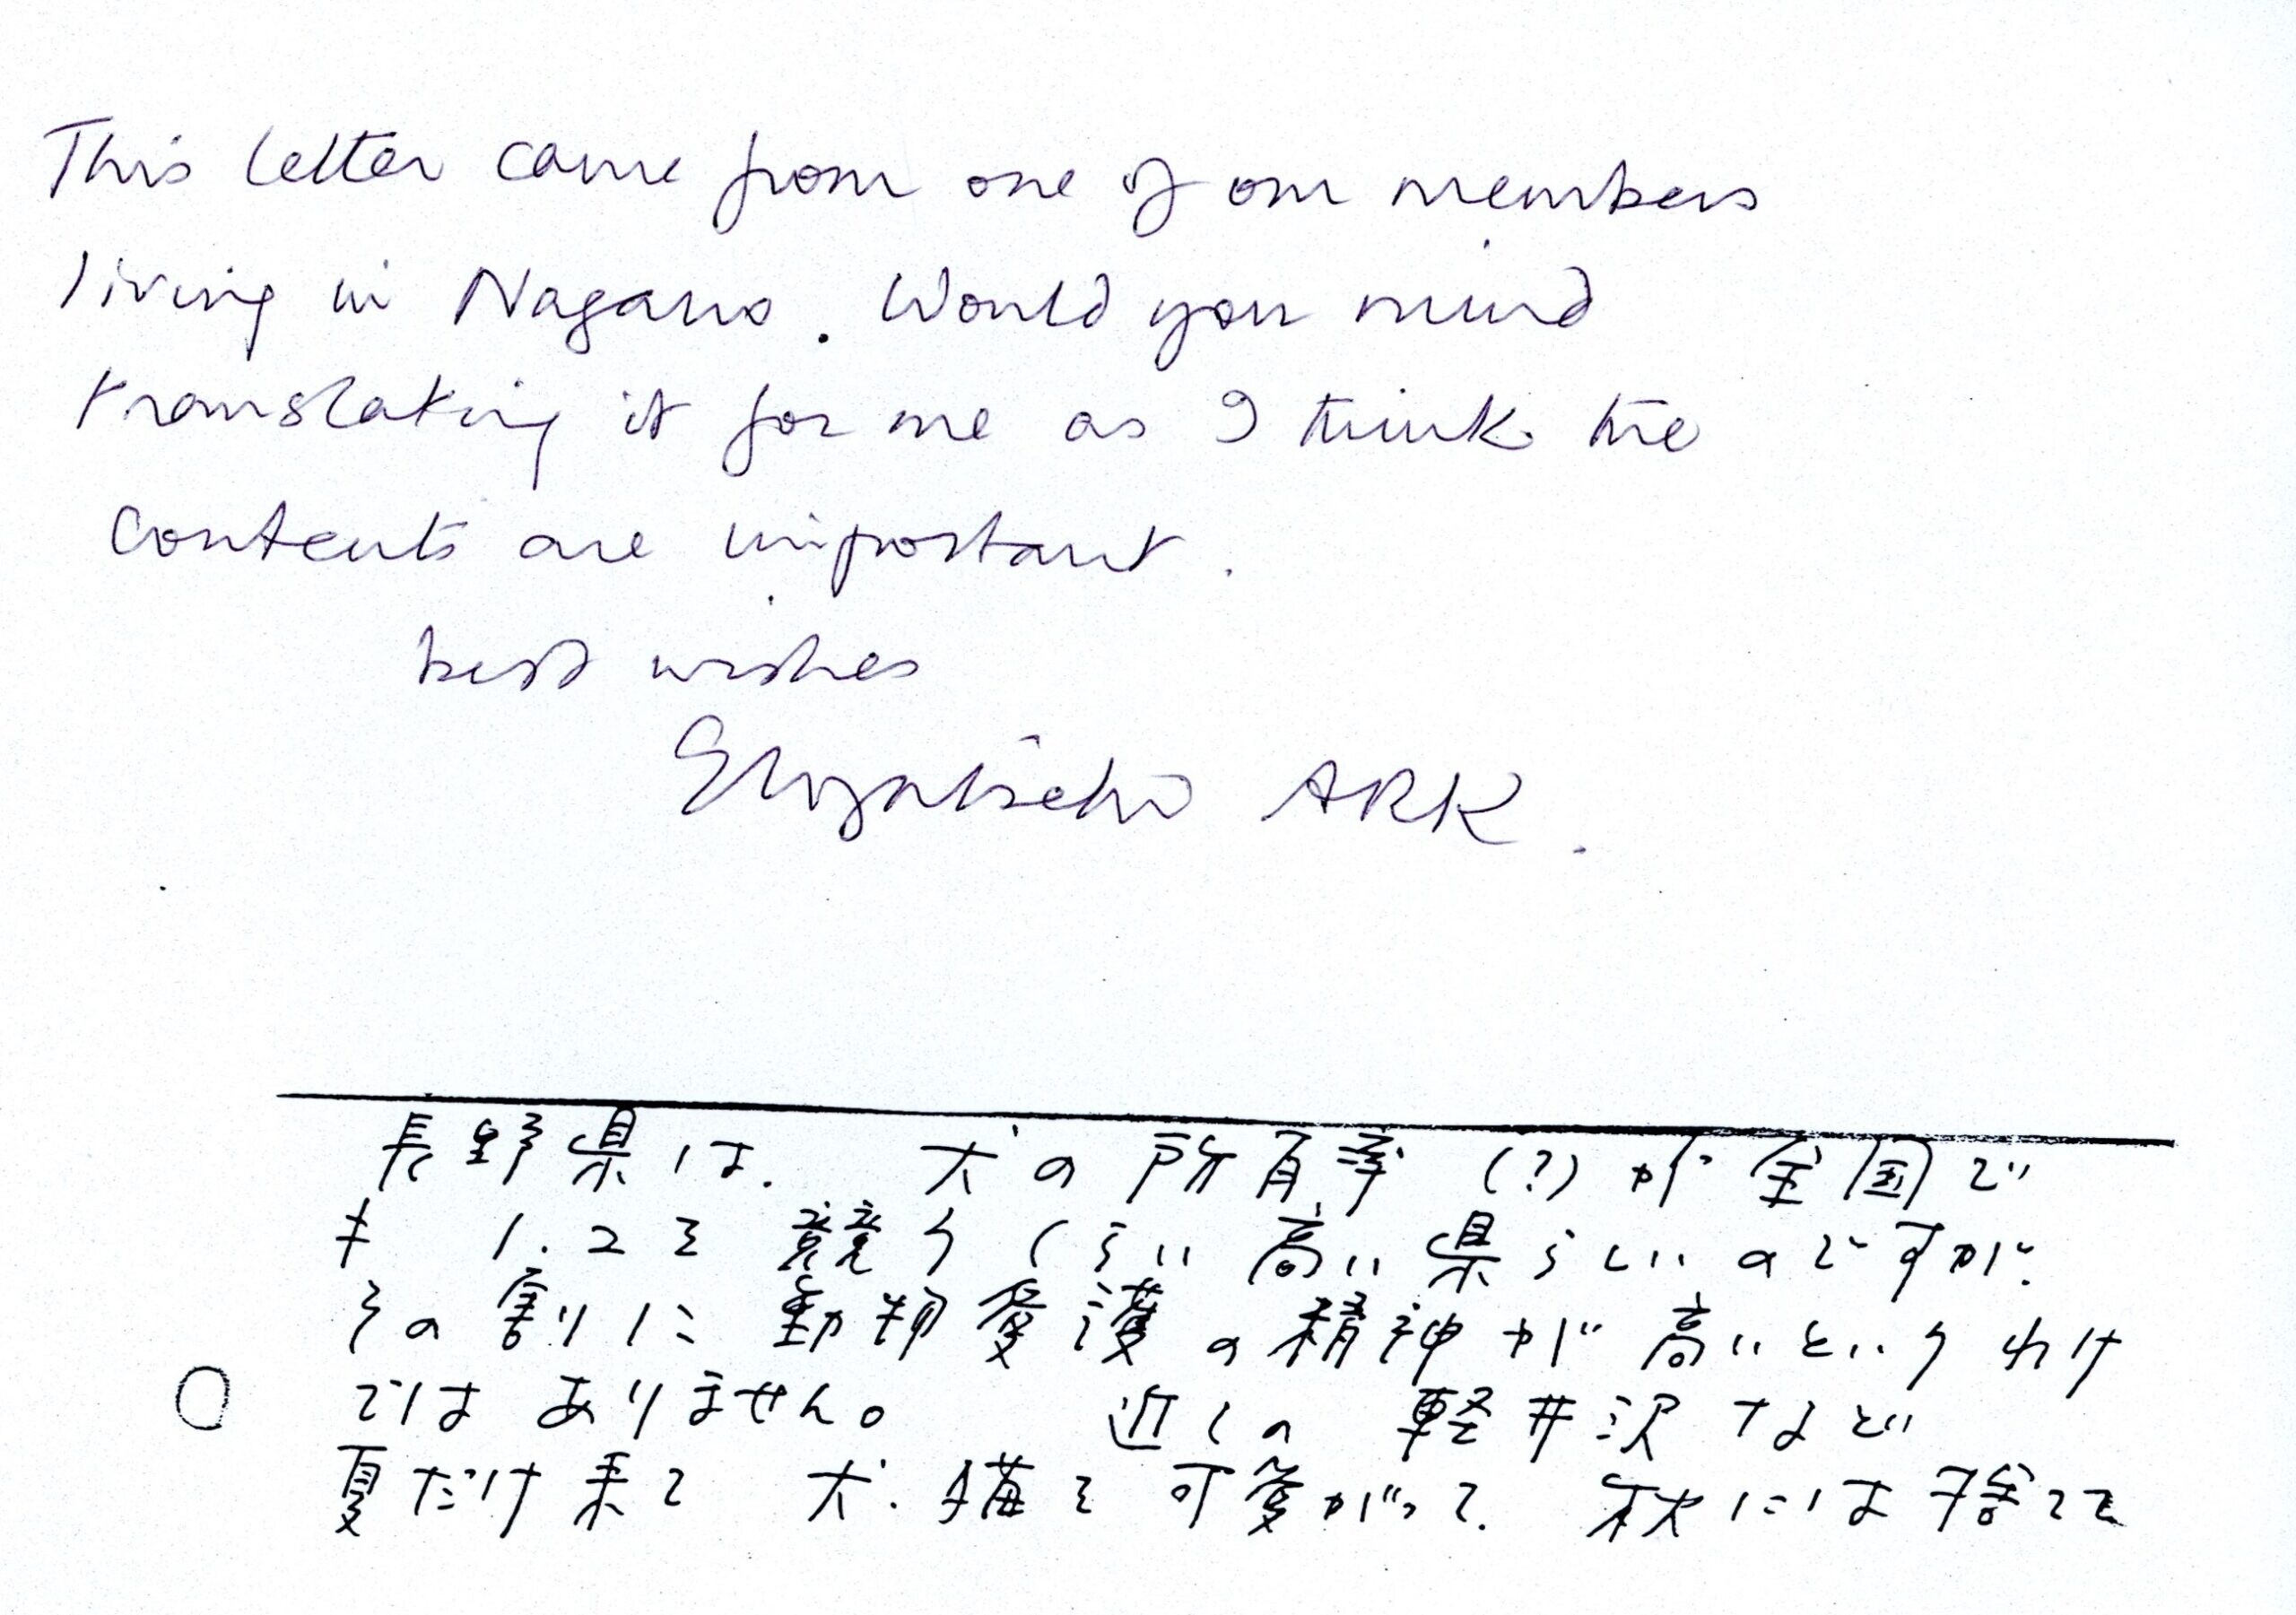 This letter came from one of our members
living in Nagano. Would you mind
translating it for me as I think the
contents are important.
best wishes
Elizabeth ARK.
長野県は、犬の所有率(?)が全国で
も 1.2を競うくらい高い県らしいのですが、
その割りに動物愛護の精神が高いというわけ
ではありません。 近くの軽井沢など
夏だけ来て 犬、猫を可愛がって、秋には捨てて